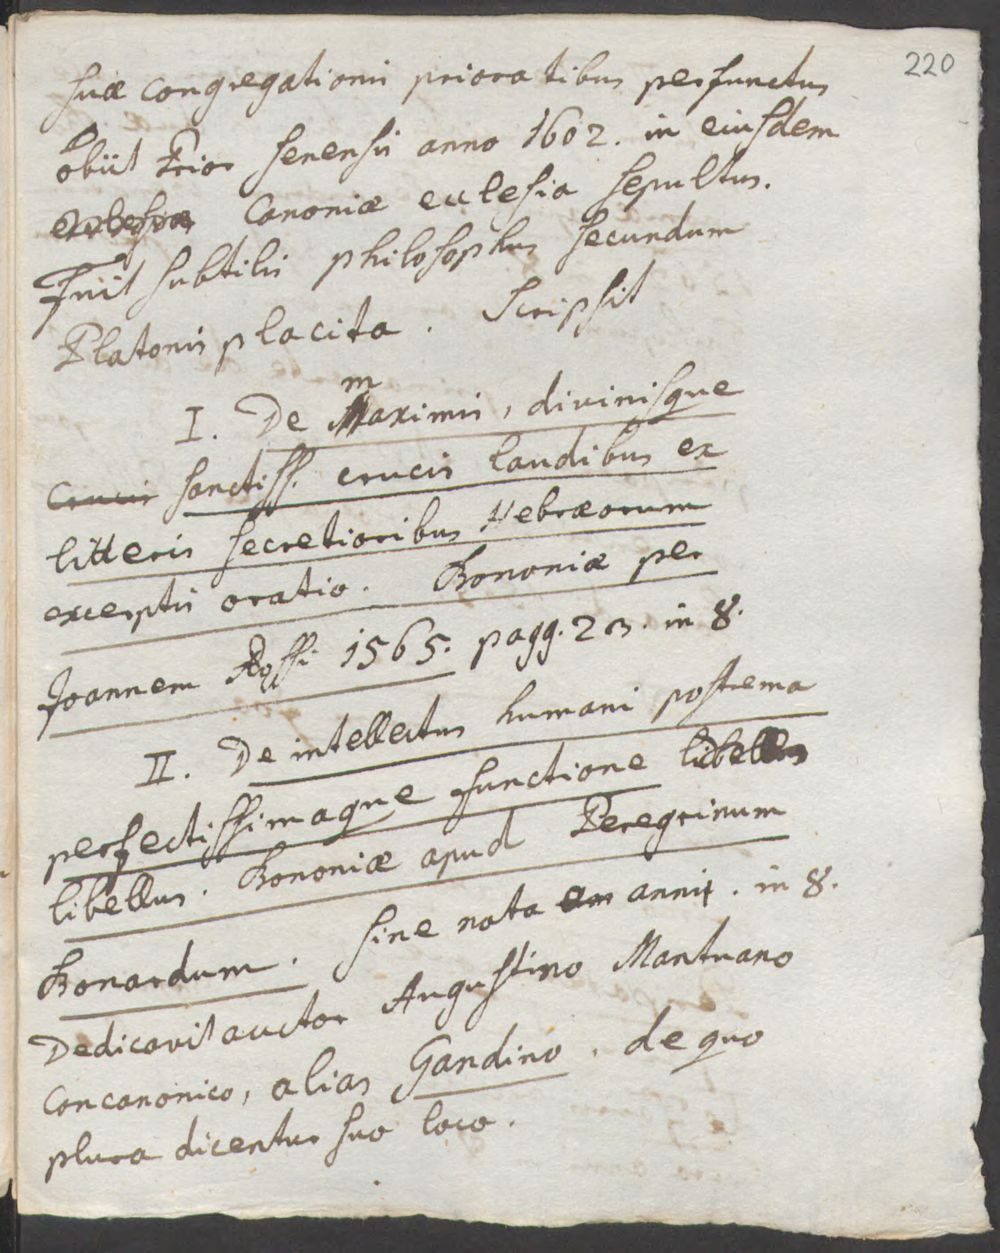 220
suæ congregationis prioratibus perfunctus
obiit Prior Senensis anno 1602. in eiusdem
Canoniæ ecclesia sepultus.
Fuit subtilis philosophus secundum
Platonis placita. Scripsit
I. De maximis, divinisque
Crucis sanctiss. crucis laudibus ex
litteris secretioribus Hebræorum
excerptis oratio. Bononiæ per
Joannem Rossi 1565. pagg. 23. in 8.
II. De intellectus humani postrema
perfectissimaque functione libellus
libellus. Bononiæ apud Peregrinum
Bonardum. sine nota an anni. in 8.
Dedicavit auctor Augustino Mantuano
Concanonico, alias Gandino, de quo
plura dicentur suo loco.